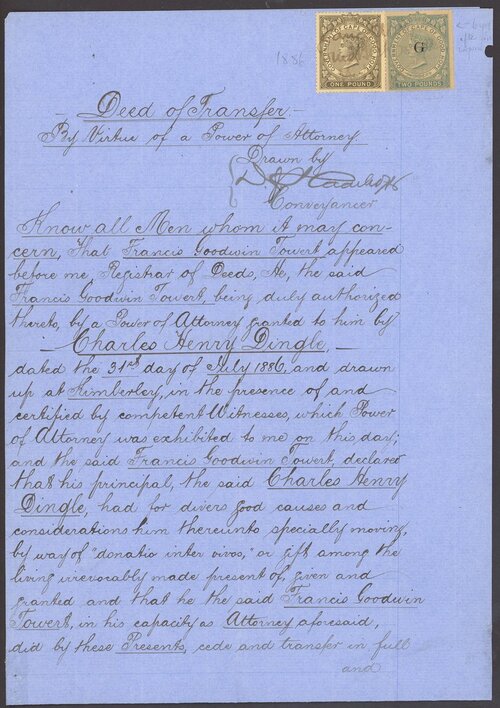 1886
ONE POUND
G
TWO POUNDS
Deed of Transfer.-
By Virtue of a Power of Attorney.
Drawn by
Conveyancer
Know all Men whom it may con-
cern, That Francis Goodwin Towert appeared
before me, Registrar of Deeds, He, the said
Francis Goodwin Towert, being duly authorized
thereto, by a Power of Attorney granted to him by
- Charles Henry Dingle, -
dated the 31st day of July 1886, and drawn
up at Kimberley, in the presence of and
certified by competent Witnesses, which Power
of Attorney was exhibited to me on this day;
and the said Francis Goodwin Towert, declared
that his principal, the said Charles Henry
Dingle, had for divers good causes and
considerations him thereunto specially moving,
by way of "donatio inter vivos," or gift among the
living irrevocably made present of, given and
granted and that he the said Francis Goodwin
Towert, in his capacity as Attorney aforesaid,
did by these Presents, cede and transfer in full
and